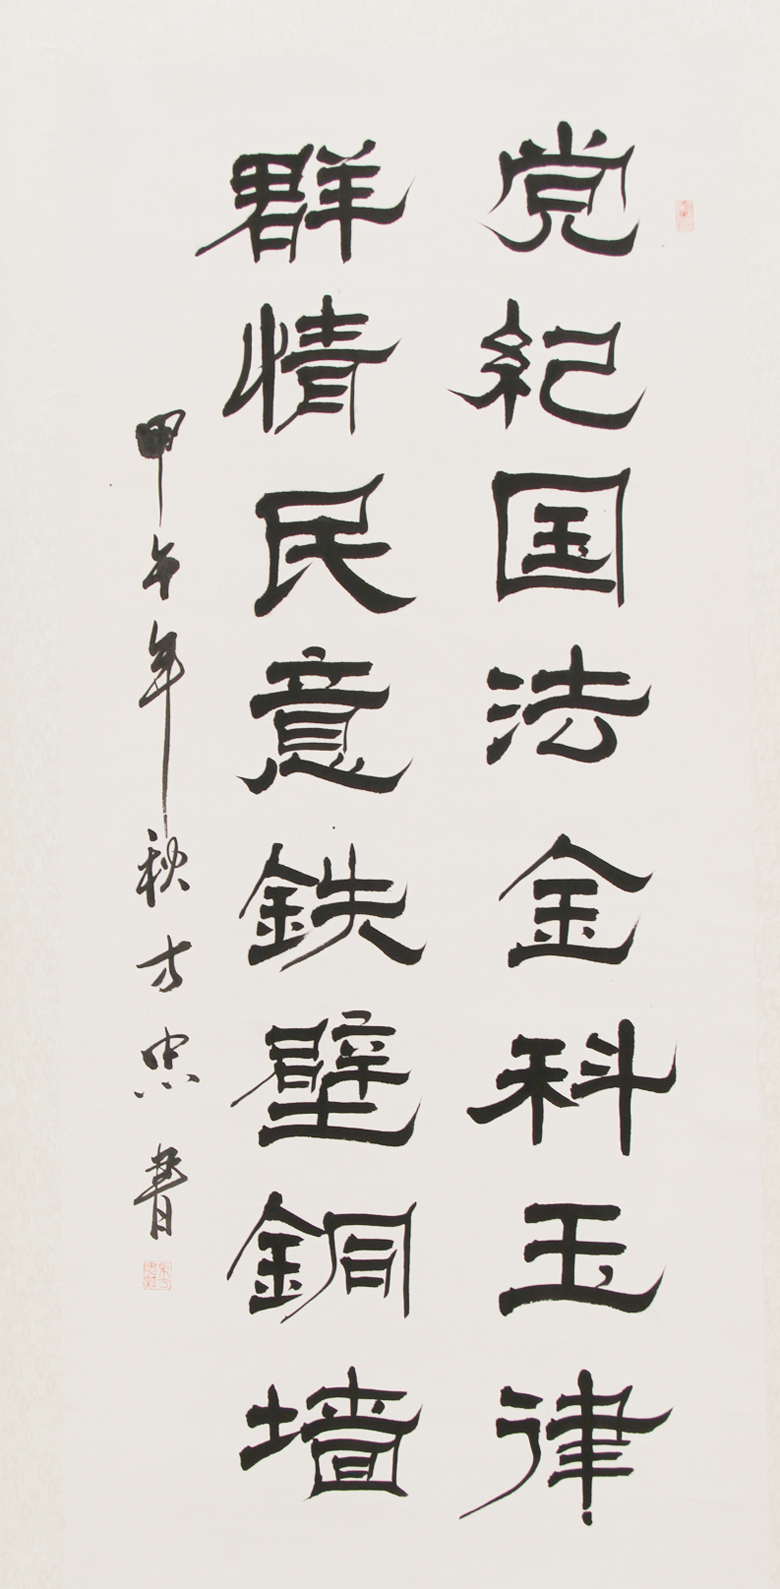 党纪国法金科玉律
群情民意鉄壁銅墙
甲午年秋方忠書